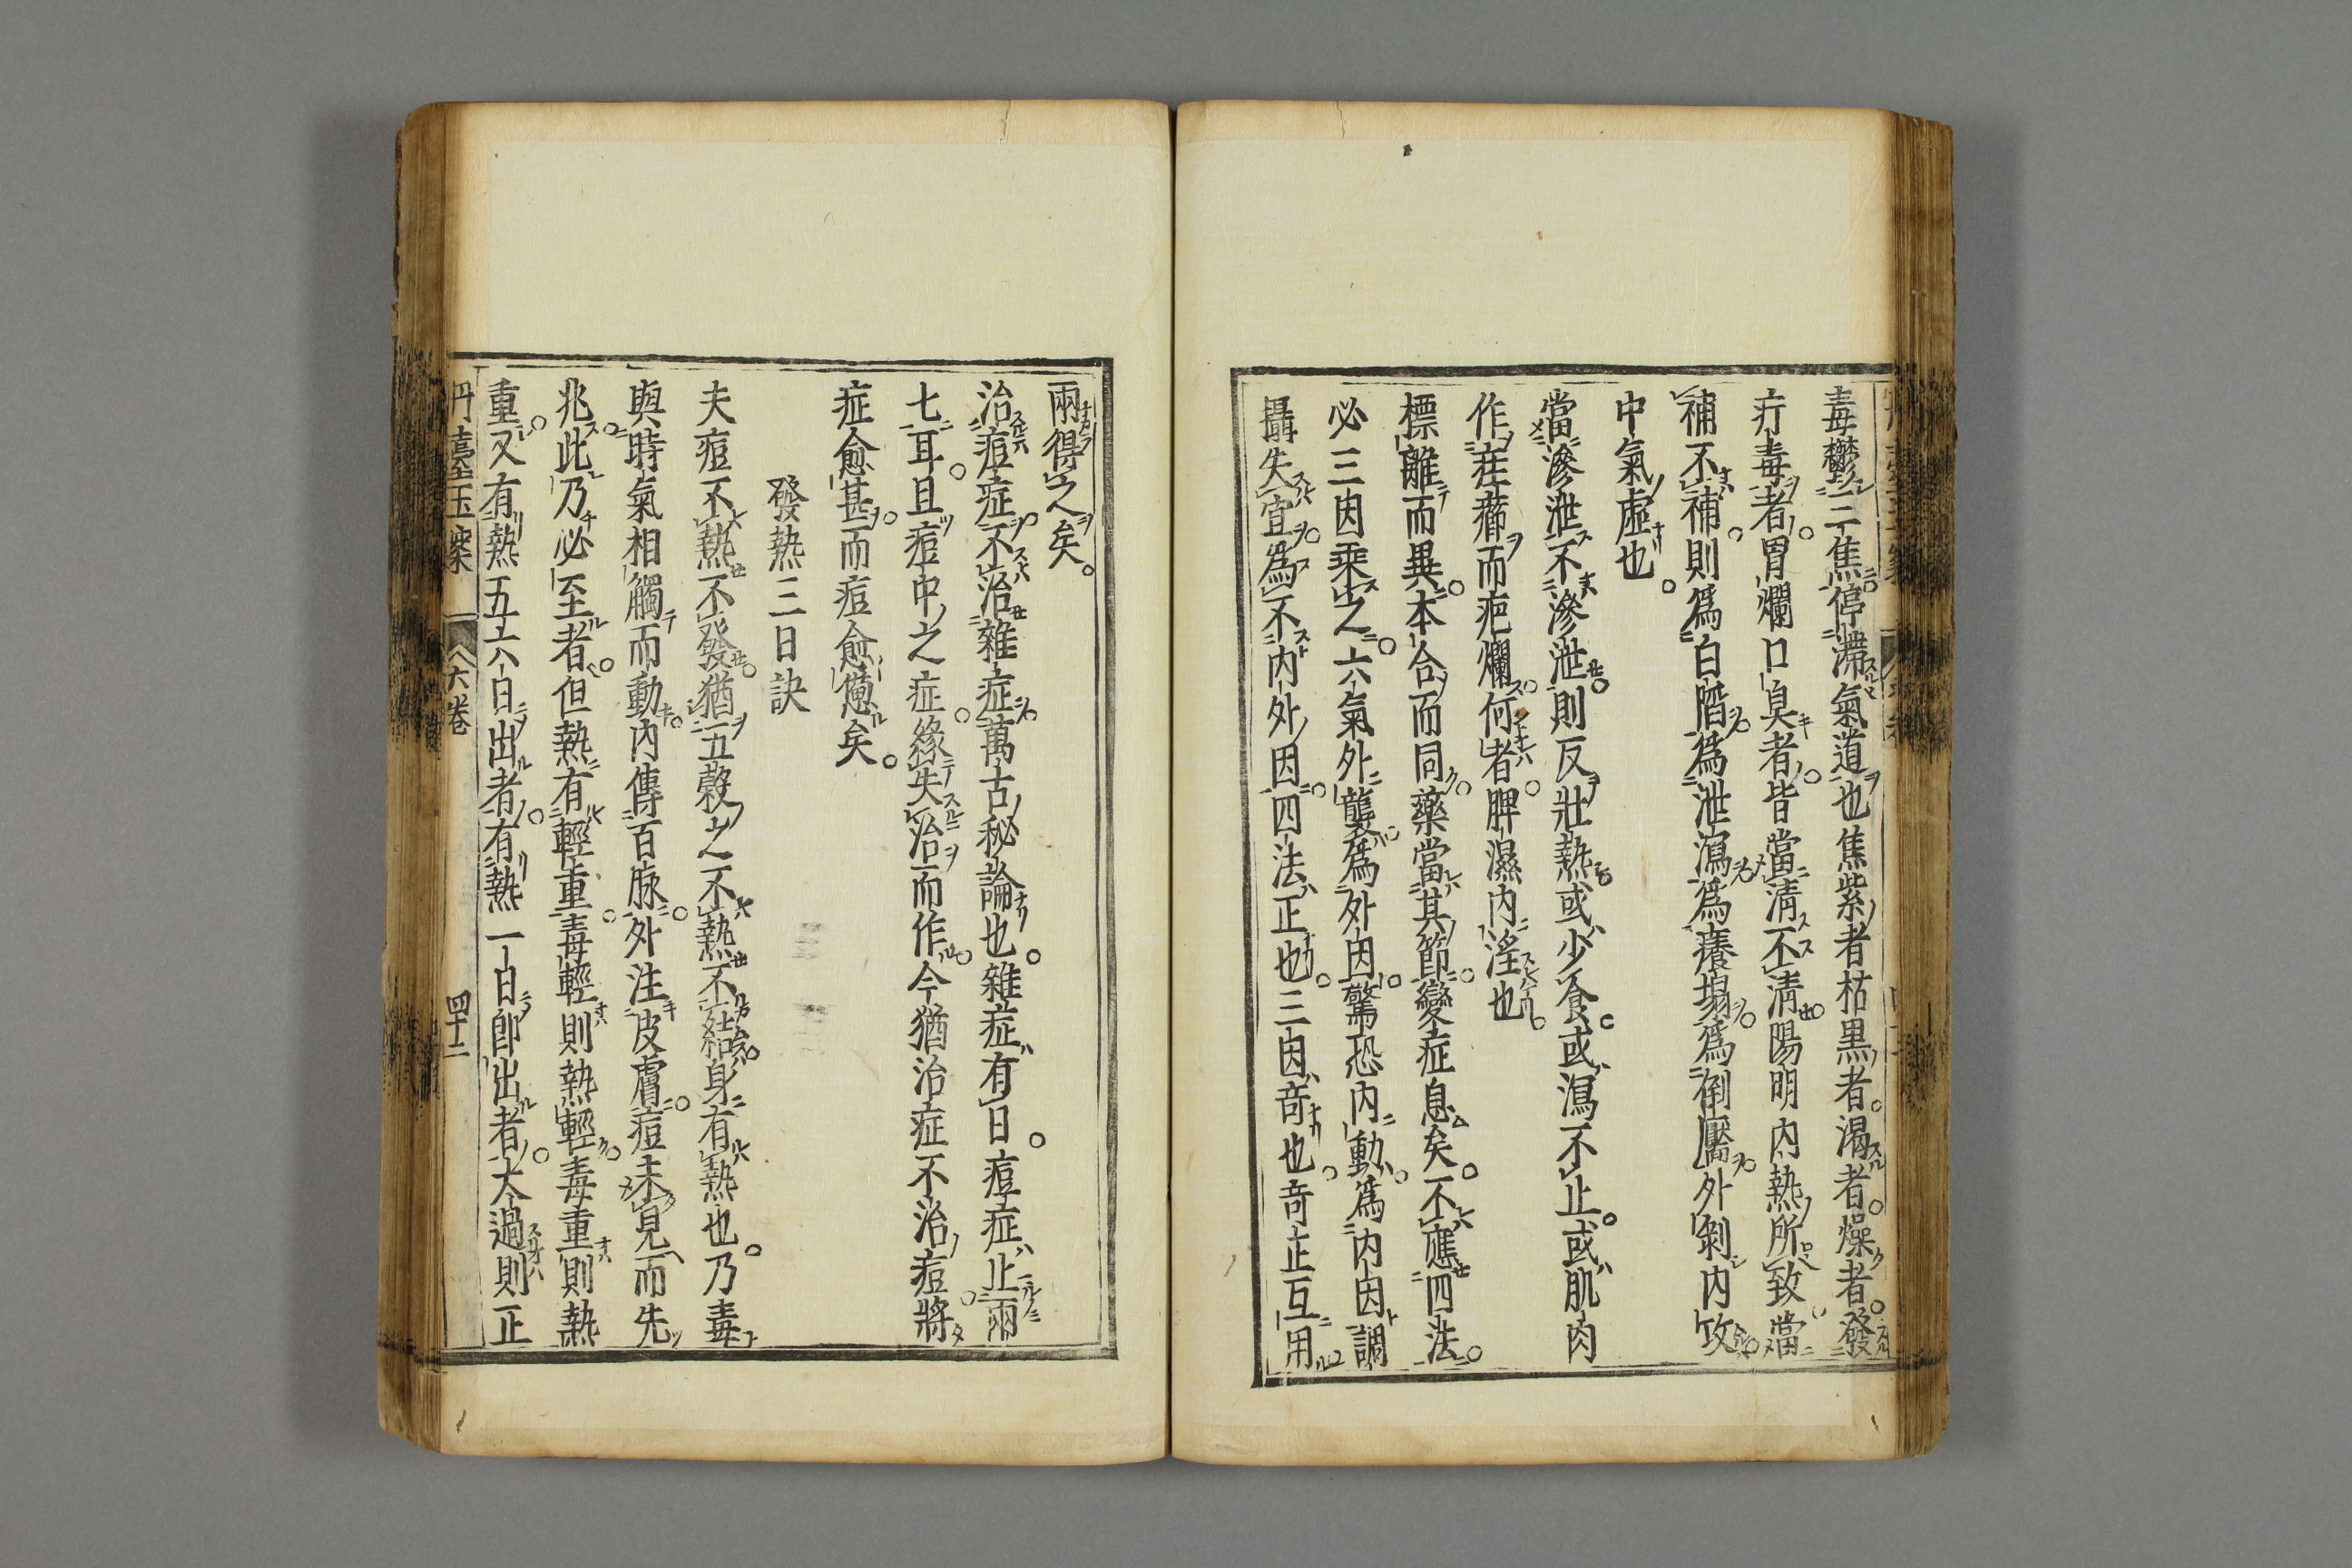 毒鬱三焦停滯氣道也焦紫者枯黒者渴者燥者發
疔毒者胃爛口臭者皆當淸不淸陽明内熱所致當
補不補則爲白䧟爲泄瀉爲癢塌爲倒靨外剝内攻
中氣虛也
當滲泄不滲泄則反壯熱或少食或瀉不止或肌肉
作痒癤而疤爛何者脾濕内滛也
標離而異本合而同藥當其節變症息矣不應四法
必三因乘之六氣外襲爲外因驚恐内動爲内因調
攝失宜爲不内外因四法正也三因奇也奇正互用
兩得之矣
治痘症不治雜症萬古秘論也雜症有日痘症止兩
七耳且痘中之症緣失治而作今猶治症不治痘將
症愈甚而痘愈憊矣
發熱三日訣
夫痘不熱不發猶五穀之不熱不結身有熱也乃毒
與時氣相觸而動内傳百脉外注皮膚痘未見而先
兆此乃必至者但熱有輕重毒輕則熱輕毒重則熱
重又有熱五六日出者有熱一日卽出者太過則正
丹臺玉案 六卷 四十二